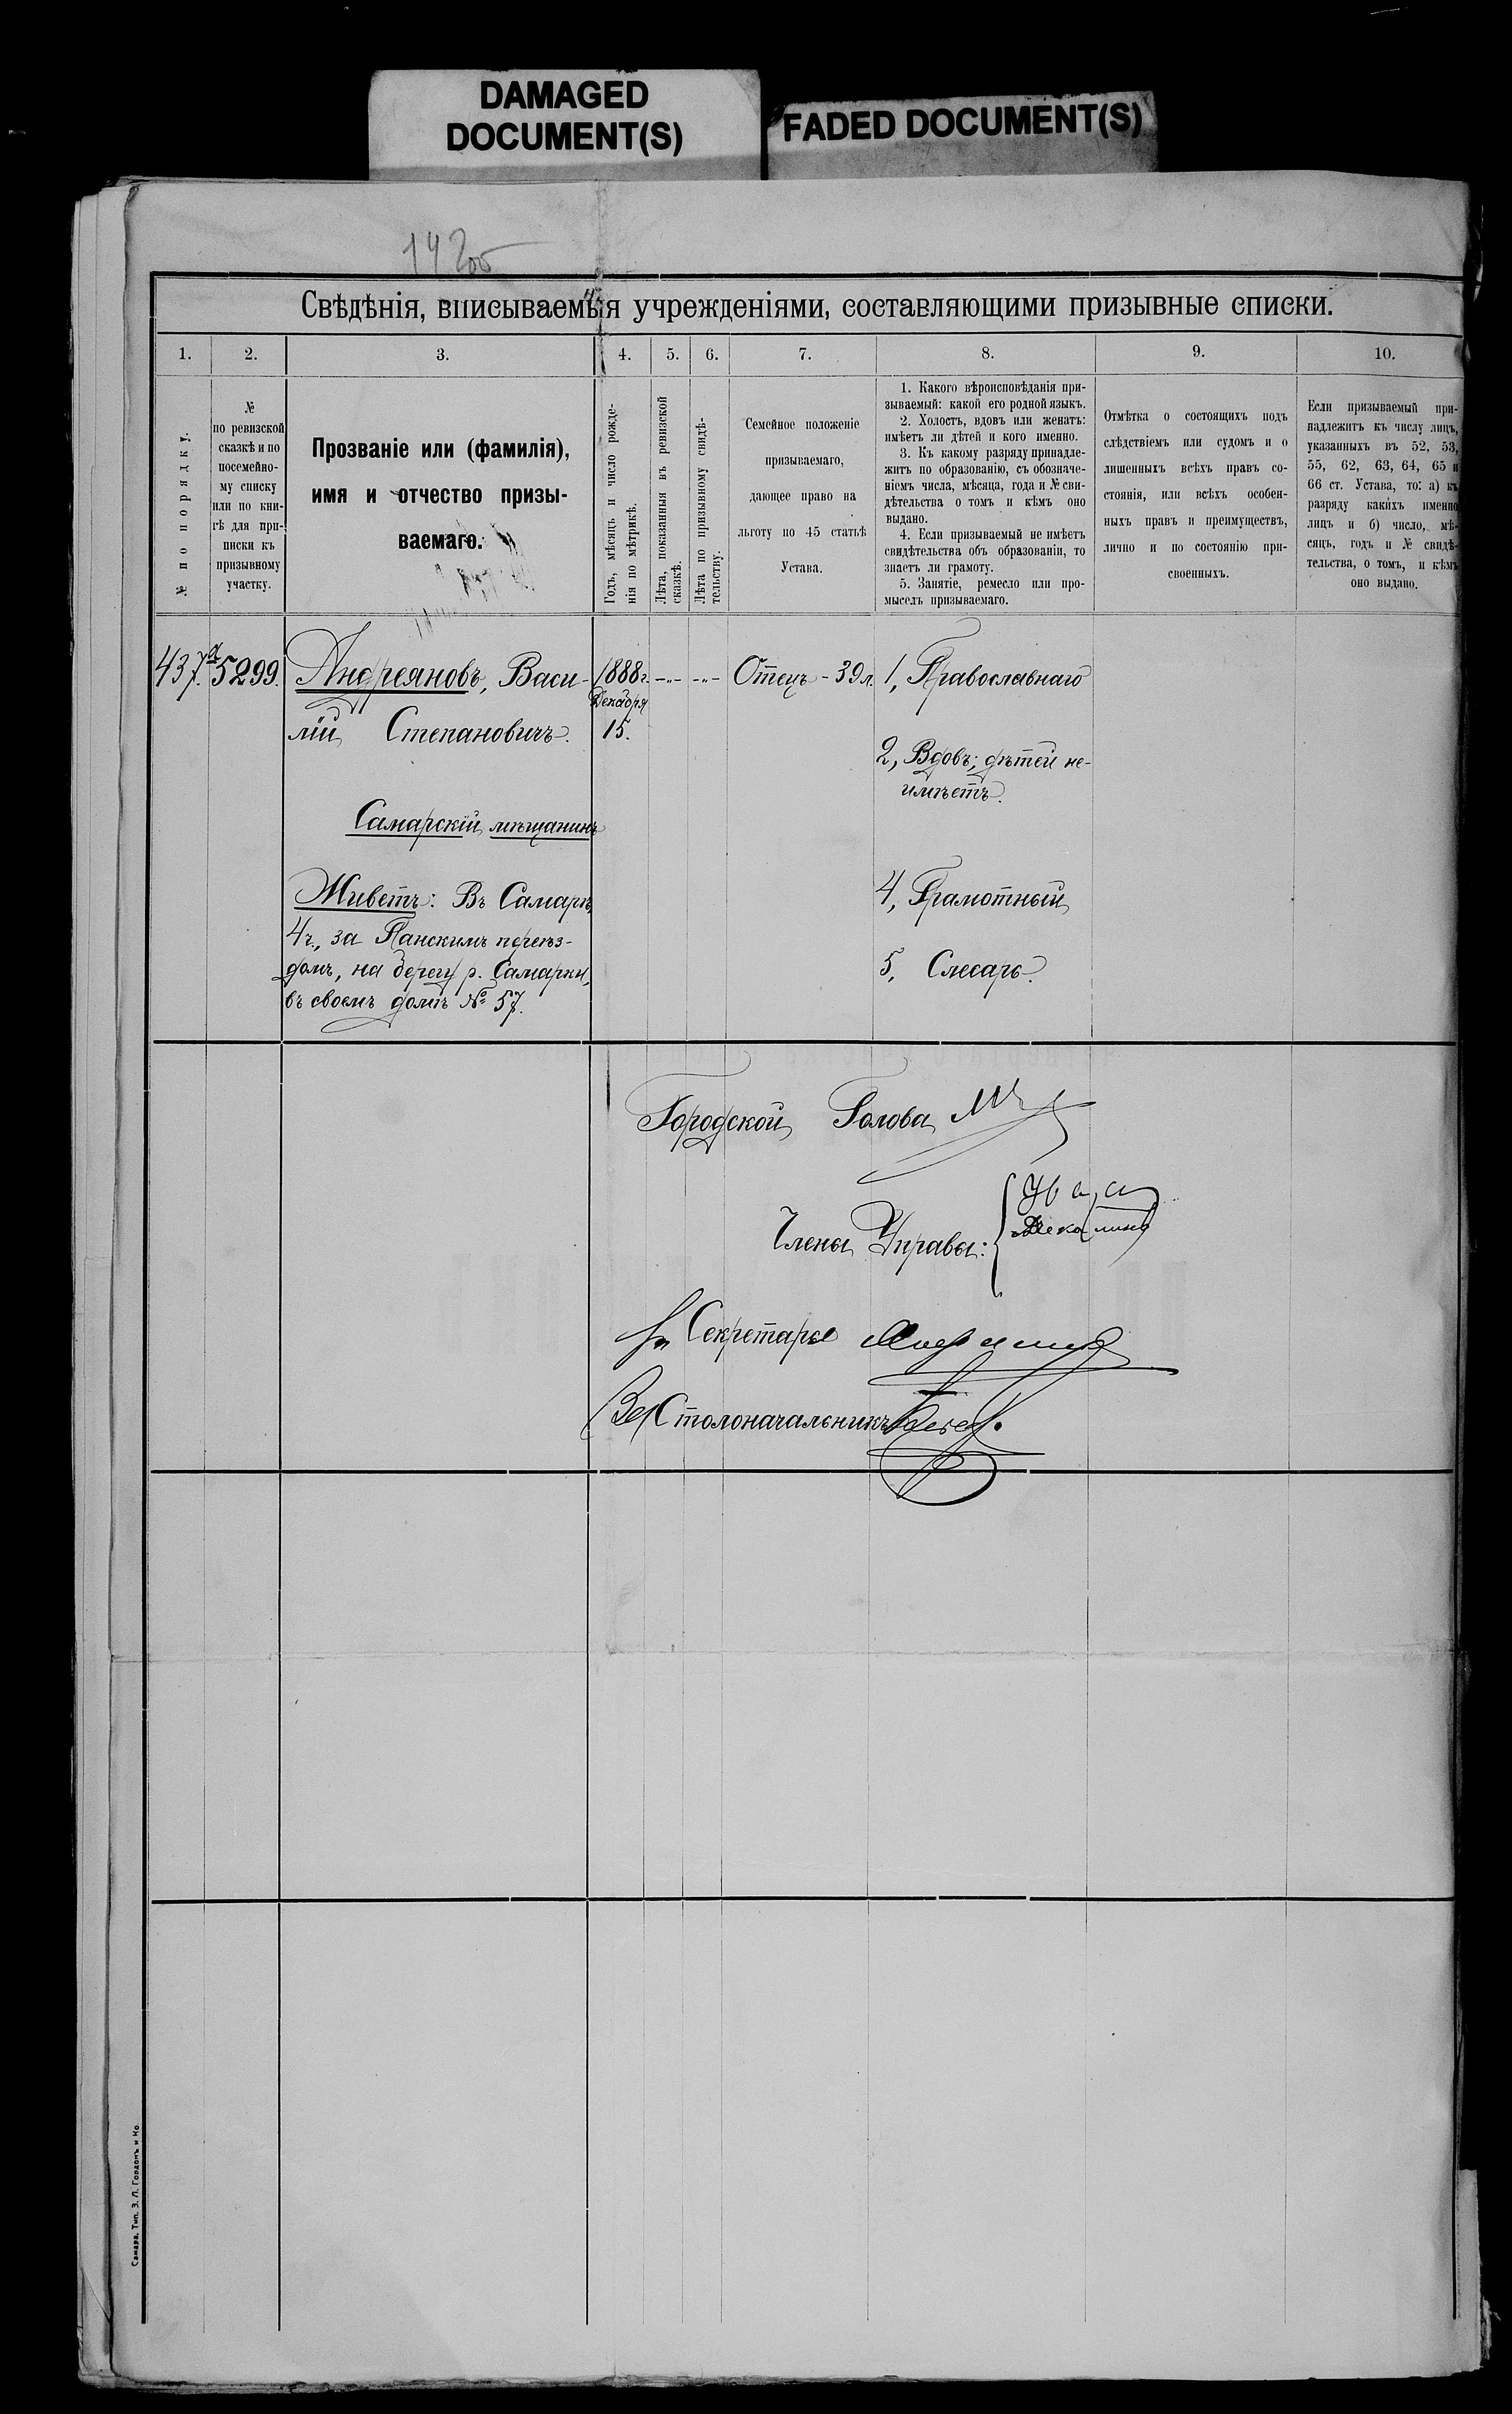 DAMAGED
DOCUMENT(S)
FADED DOCUMENT(S)
Свѣдѣнія, вписываемыя учрежденіями, составляющими призывные списки.
1.
2.
3.
4.
5.
6.
7.
8.
9.
10.
№ по порядку.
№
по ревизской
сказкѣ и по
посемейно-
му списку
или по кни-
гѣ для при-
писки къ
призывному
участку.
Прозваніе или (фамилія),
имя и отчество призы-
ваемаго.
Годъ, мѣсяцъ и число рожде-
нія по мѣтрикѣ.
Лѣта, показанныя въ ревизской
сказкѣ.
Лѣта по призывному свидѣ-
тельству.
Семейное положеніе
призываемаго,
дающее право на
льготу по 45 статьѣ
Устава.
1. Какого вѣроисповѣданія при-
зываемый: какой его родной языкъ.
2. Холостъ, вдовъ или женатъ:
имѣетъ ли дѣтей и кого именно.
3. Къ какому разряду принадле-
житъ по образованію, съ обозначе-
ніемъ числа, мѣсяца, года и № сви-
дѣтельства о томъ и кѣмъ оно
выдано.
4. Если призываемый не имѣетъ
свидѣтельства объ образованіи, то
знаетъ ли грамоту.
5. Занятіе, ремесло или про-
мыселъ призываемаго.
Отмѣтка о состоящихъ подъ
слѣдствіемъ или судомъ и о
лишенныхъ всѣхъ правъ со-
стоянія, или всѣхъ особен-
ныхъ правъ и преимуществъ,
лично и по состоянію при-
своенныхъ.
Если призываемый при-
надлежитъ къ числу лицъ,
указанныхъ въ 52, 53,
55, 62, 63, 64, 65 и
66 ст. Устава, то: а) къ
разряду какихъ именно
лицъ и б) число, мѣ-
сяцъ, годъ и № свидѣ-
тельства, о томъ, и кѣмъ
оно выдано.
437. 5299. Андреяновъ, Васи- 1888г. -„- -„- Отецъ - 39 л. 1, Православнаго
Декабря
лій Степановичъ. 15.
2, Вдовъ; дѣтей не-
имѣетъ.
Самарскій мѣщанинъ
Живетъ: Въ Самарѣ, 4, Грамотный
4ч., за Панскимъ переѣз-
домъ, на берегу р. Самарки, 5, Слесарь.
въ своемъ домѣ № 57.
Городской Голова
Члены Управы:
Секретаря
Столоначальникъ
Самара, Тип. З. Л. Гордонъ и Ко.